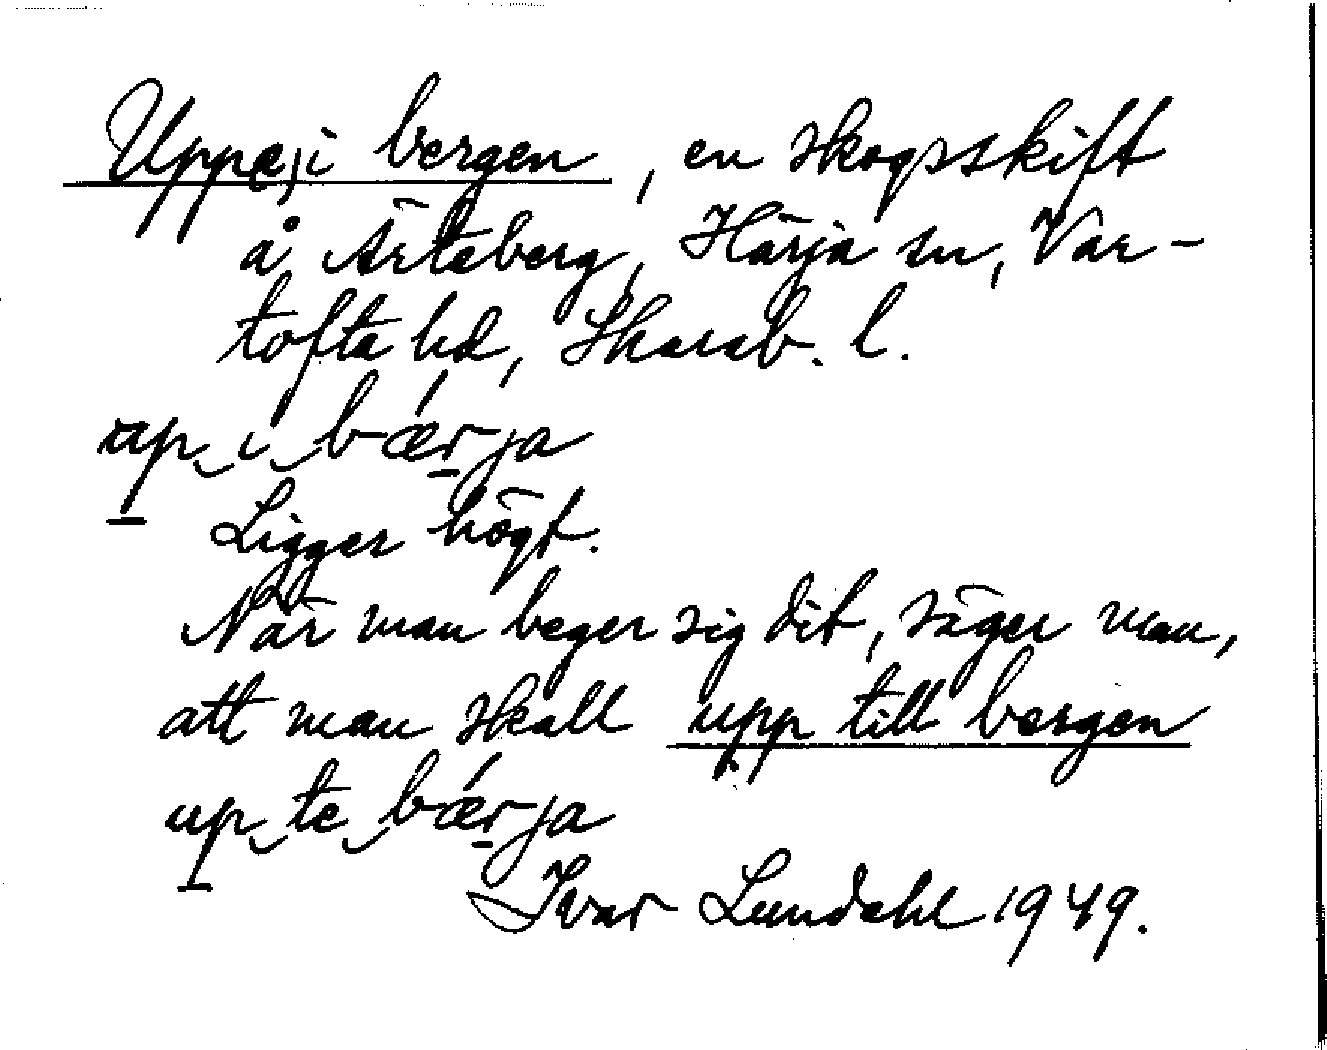 Upp(e) i bergen, en skogsskift
å Ärteberg, Härja sn, Var-
tofta hd, Skarab. l.
up i bǽrja
Ligger högt.
När man beger sig dit, säger man,
att man skall upp till bergen
up te bǽrja
Ivar Lundahl 1949.